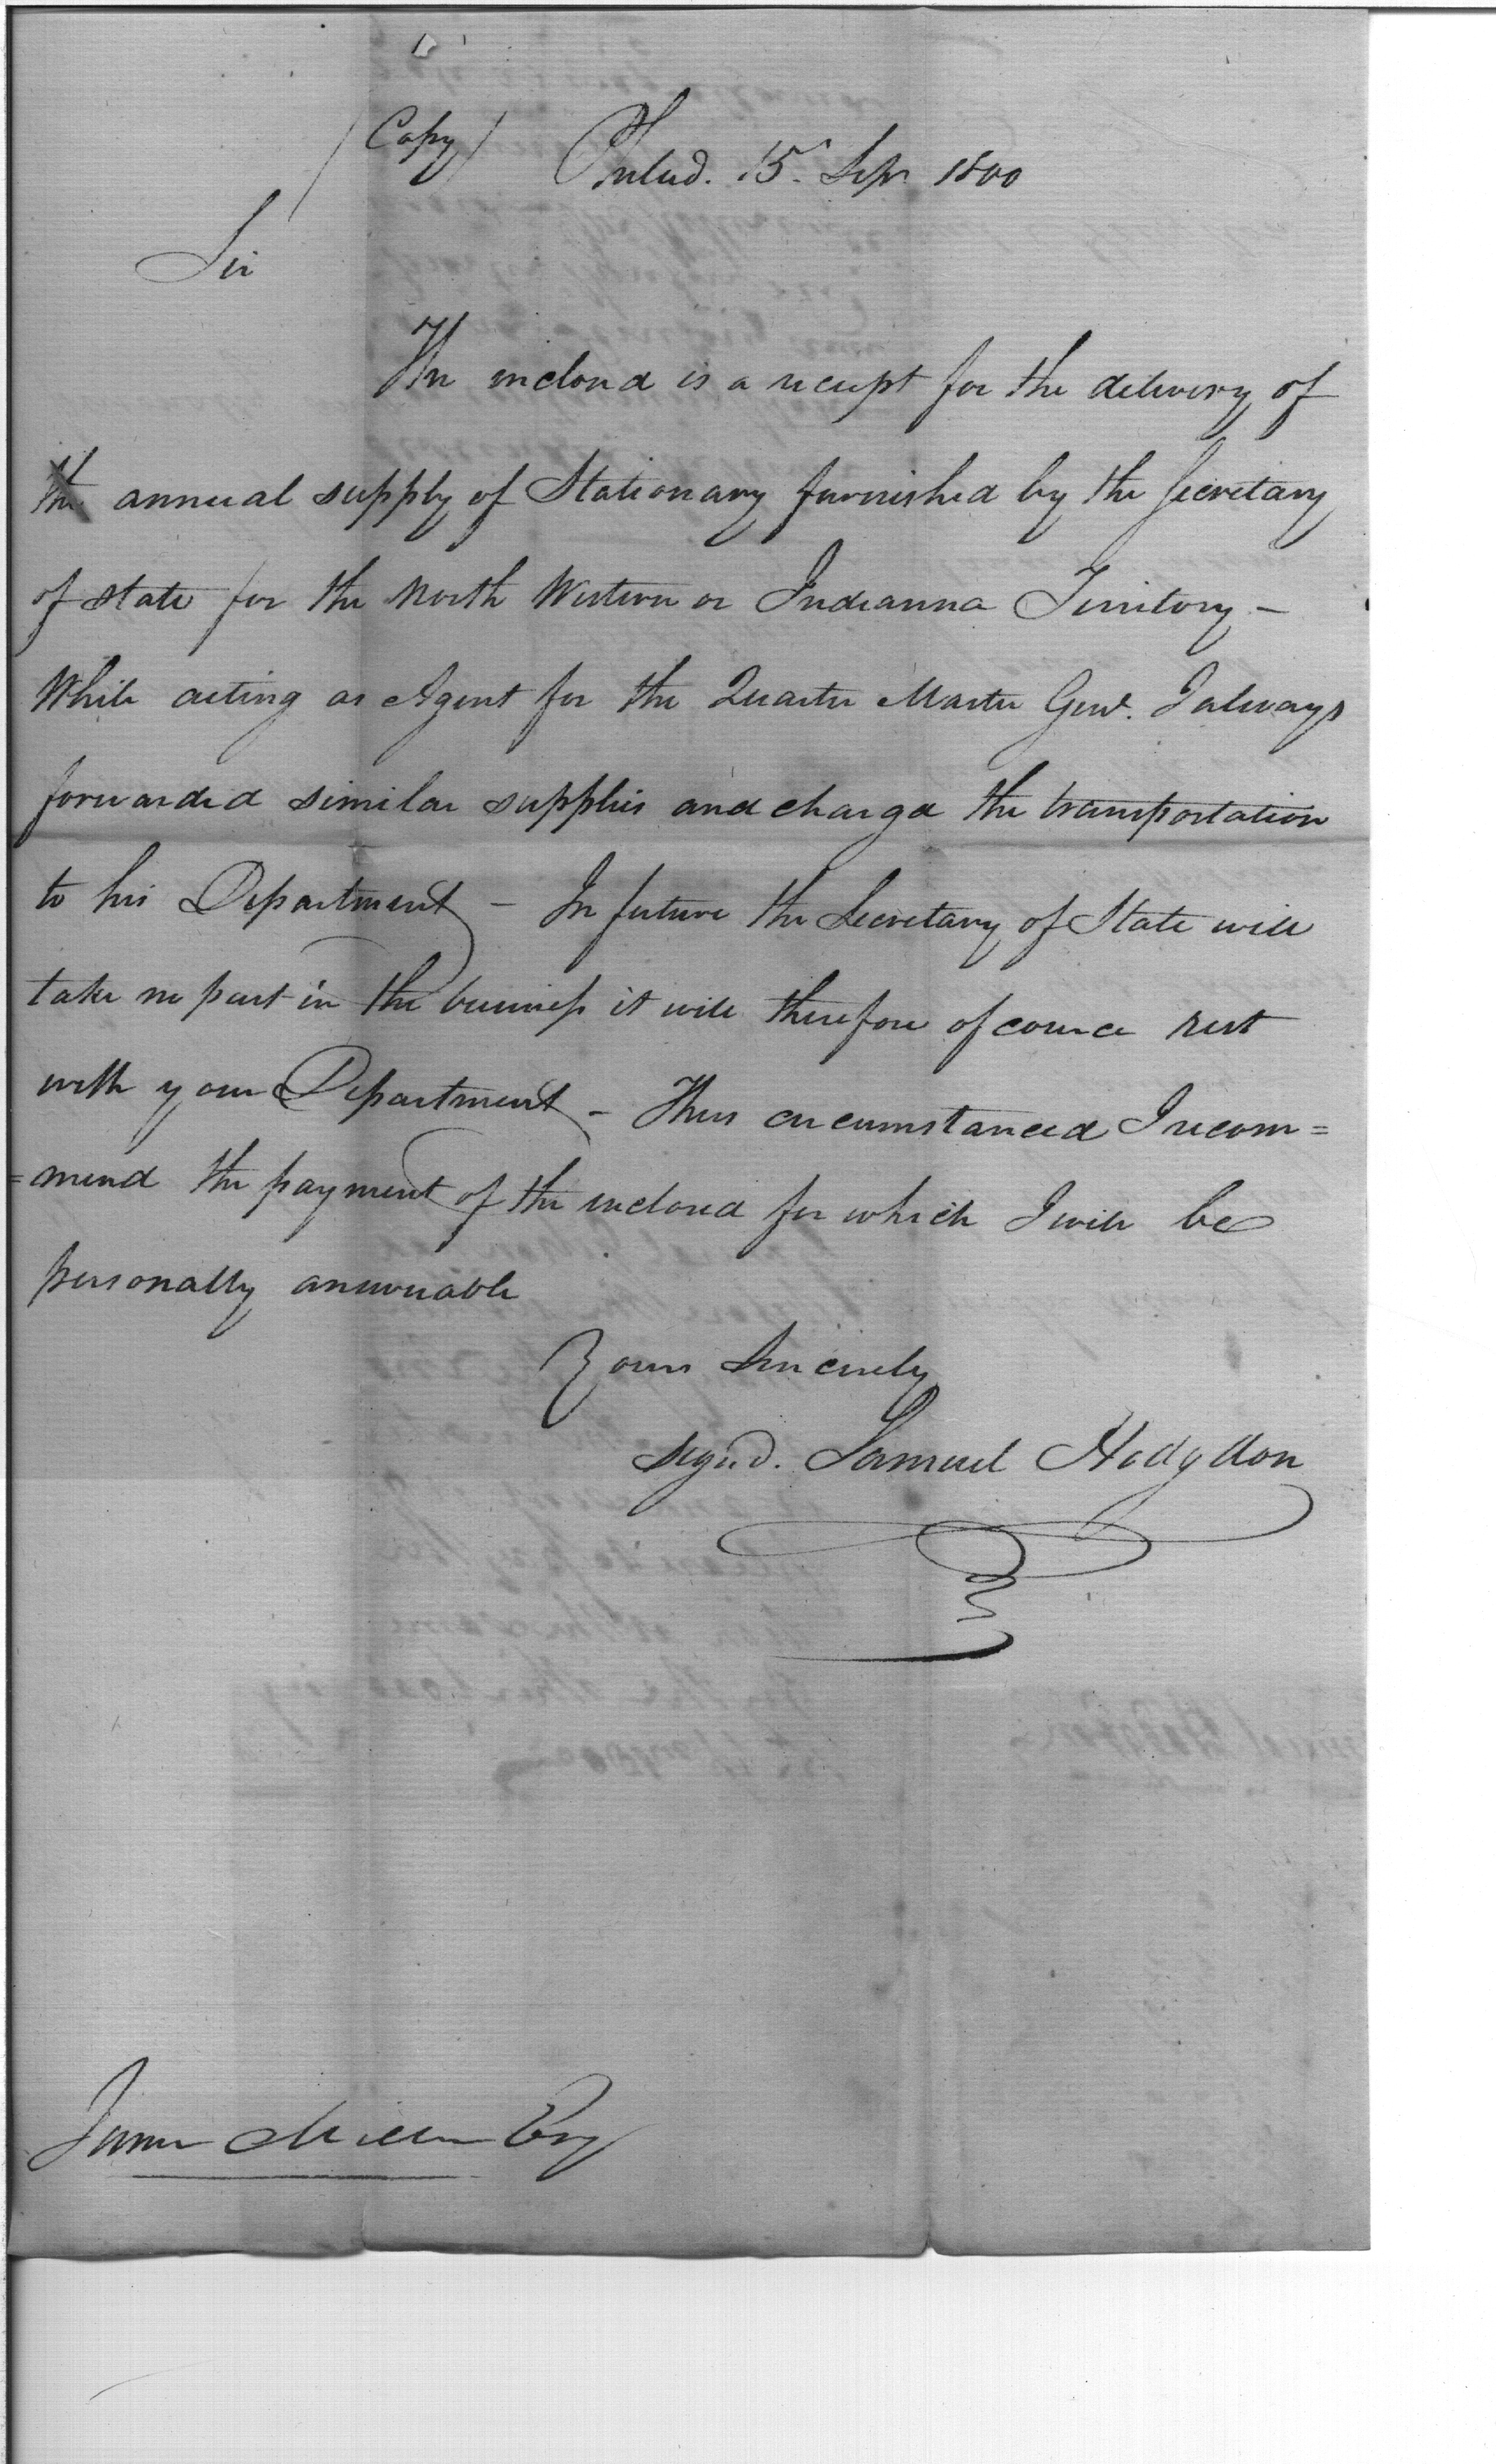 (Copy) Philad. 15. Sepr 1800
Sir
The inclosed is a receipt for the delivery of
the annual supply of Stationary furnished by the Secretary
of state for the North Western or Indianna Territory –
While acting as Agent for the Quarter Master Genl. I always
forwarded similar supplies and charged the transportation
to his Department – In future the Secretary of State will
take no part in the business it will therefore of cource rest
with your Department – Thus circumstanced I recom=
=mend the payment of the inclosed for which I will be
personally answerable
Yours Sincerely
signd. Samuel Hodgdon
James Miller Esq